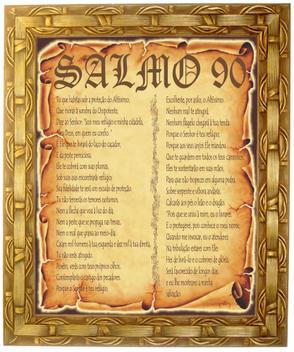 SALMO 90
Tu que habitas sob a proteção do Altíssimo,
Que moras à sombra do Onipotente,
Dize ao Senhor: Sois meu refúgio e minha cidadela,
Meu Deus, em quem eu confio.
É ele que te livrará do laço do caçador,
E da peste perniciosa.
Ele te cobrirá com suas plumas,
Sob suas asas encontrarás refúgio.
Sua fidelidade te será um escudo de proteção.
Tu não temerás os terrores noturnos,
Nem a flecha que voa à luz do dia,
Nem a peste que se propaga nas trevas,
Nem o mal que grassa ao meio-dia.
Caiam mil homens à tua esquerda e dez mil à tua direita,
Tu não serás atingido.
Porém, verás com teus próprios olhos,
Contemplarás o castigo dos pecadores,
Porque o Senhor é teu refúgio.
Escolheste, por asilo, o Altíssimo.
Nenhum mal te atingirá,
Nenhum flagelo chegará à tua tenda,
Porque o Senhor é teu refúgio
Porque aos seus anjos Ele mandou
Que te guardem em todos os teus caminhos.
Eles te sustentarão em suas mãos,
Para que não tropeces em alguma pedra.
Sobre serpente e víbora andarás,
Calcarás aos pés o leão e o dragão.
"Pois que se uniu à mim, eu o livrarei,
E o protegerei, pois conhece o meu nome.
Quando me invocar, eu o atenderei
Na tribulação estarei com ele.
Hei de livrá-lo e o cobrirei de glória.
Será favorecido de longos dias,
e eu lhe mostrarei a minha
salvação.